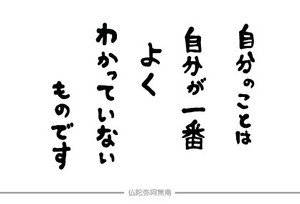 自分のことは
自分が一番
よく
わかっていない
ものです
仏陀弥阿無南